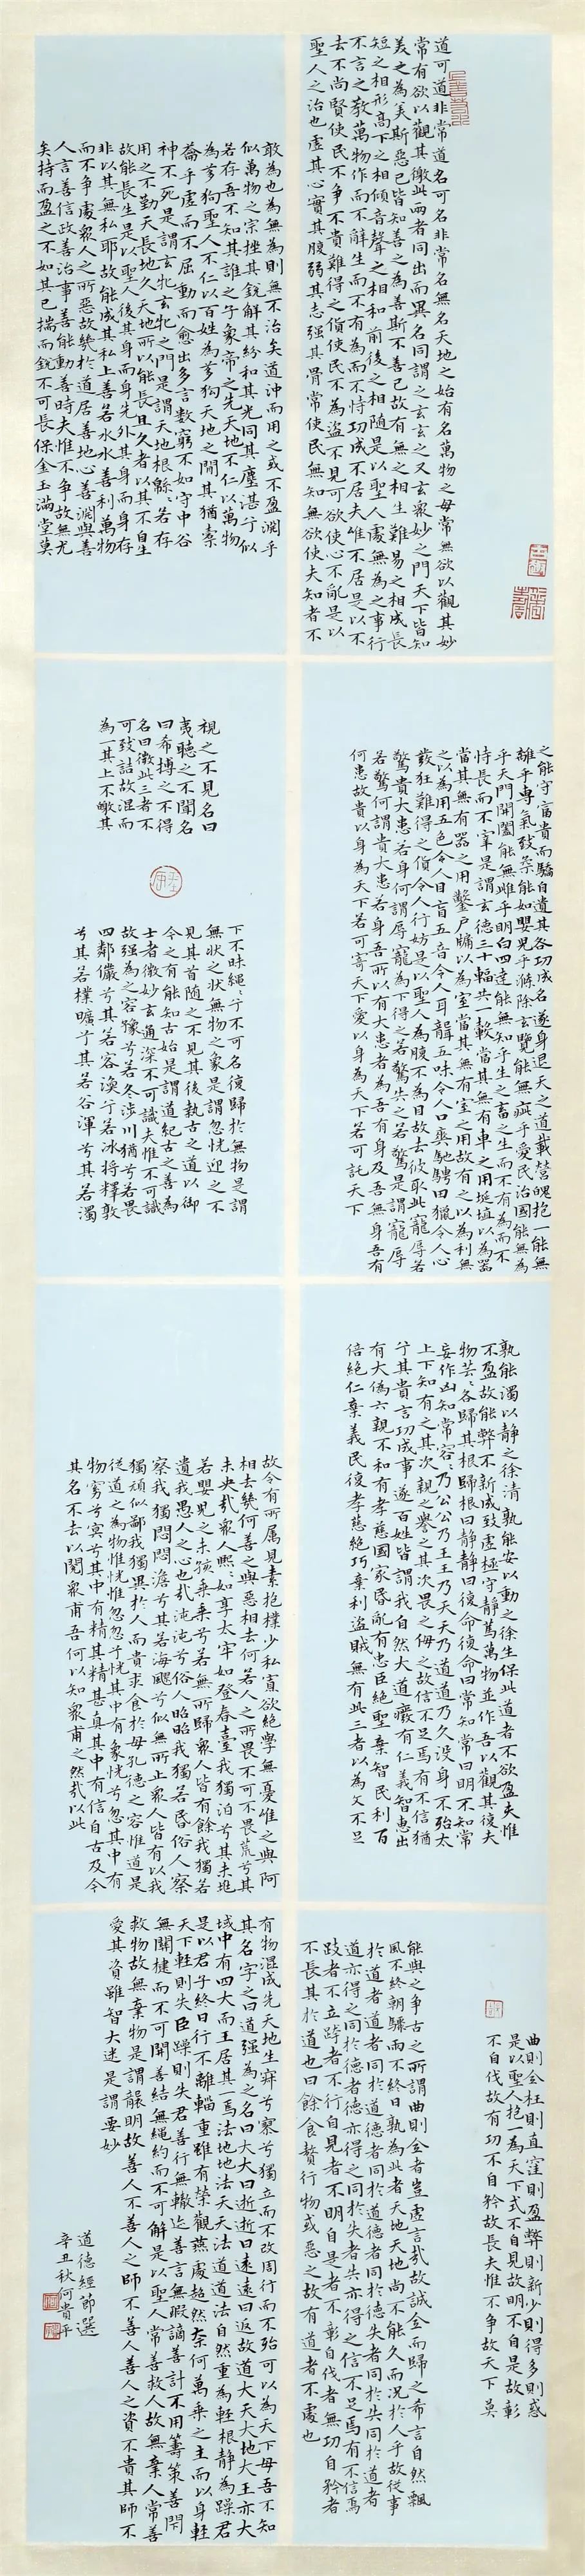 道可道非常道名可名非常名無名天地之始有名萬物之母常無欲以觀其妙
常有欲以觀其徼此兩者同出而異名同謂之玄玄之又玄眾妙之門天下皆知
美之為美斯惡已皆知善之為善斯不善已故有無之相生難易之相成長
短之相形高下之相傾音聲之相和前後之相隨是以聖人處無為之事行
不言之教萬物作而不辭生而不有為而不恃功成不居夫惟不居是以不
去不尚賢使民不爭不貴難得之貨使民不為盜不見可欲使心不亂是以
聖人之治也虛其心實其腹弱其志强其骨常使民無知無欲使夫知者不
敢為也為無為則無不治矣道沖而用之或不盈淵乎
似萬物之宗挫其銳解其紛和其光同其塵湛兮似
若存吾不知其誰之子象帝之先天地不仁以萬物
為芻狗聖人不仁以百姓為芻狗天地之間其猶橐
籥乎虛而不屈動而愈出多言數窮不如守中谷
神不死是謂玄牝玄牝之門是謂天地根緜〻若存
用之不勤天長地久天地所以能長且久者以其不自生
故能長生是以聖人後其身而身先外其身而身存
非以其無私耶故能成其私上善若水水善利萬物
而不爭處眾人之所惡故幾於道居善地心善淵與善
人言善信政善治事善能動善時夫惟不爭故無尤
矣持而盈之不如其已揣而銳不可長保金玉滿堂莫
之能守富貴而驕自遺其咎功成名遂身退天之道載營魄抱一能無
離乎專氣致柔能如嬰兒乎滌除玄覽能無疵乎愛民治國能無為
乎天門開闔能無雌乎明白四達能無知乎生之畜之生而不有為而不
恃長而不宰是謂玄德三十輻共一轂當其無有車之用埏埴以為器
當其無有器之用鑿戶牖以為室當其無有室之用故有之以為利無
之以為用五色令人目盲五音令人耳聾五味令人口爽馳騁田獵令人心
發狂難得之貨令人行妨是以聖人為腹不為目故去彼取此寵辱若
驚貴大患若身何謂辱寵為下得之若驚失之若驚是謂寵辱
若驚何謂貴大患若身吾所以有大患者為吾有身及吾無身吾有
何患故貴以身為天下若可寄天下愛以身為天下若可託天下
視之不見名曰
夷聽之不聞名
曰希搏之不得
名曰微此三者不
可致詰故混而
為一其上不皦其
下不昧繩〻兮不可名復歸於無物是謂
無狀之狀無物之象是謂忽恍迎之不
見其首隨之不見其後執古之道以御
今之有能知古始是謂道紀古之善為
士者微妙玄通深不可識夫惟不可識
故强為之容豫兮若冬涉川猶兮若畏
四鄰儼兮其若容渙兮若冰將釋敦
兮其若樸曠兮其若谷渾兮其若濁
孰能濁以靜之徐清孰能安以動之徐生保此道者不欲盈夫惟
不盈故能弊不新成致虛極守靜篤萬物並作吾以觀其復夫
物芸〻各歸其根歸根曰靜靜曰復命復命曰常知常曰明不知常
妄作凶知常容〻乃公公乃王王乃天天乃道道乃久沒身不殆太
上下知有之其次親之譽之其次畏之侮之故信不足焉有不信猶
兮其貴言功成事遂百姓皆謂我自然大道廢有仁義智惠出
有大偽六親不和有孝慈國家昏亂有忠臣絕聖棄智民利百
倍絕仁棄義民復孝慈絕巧棄利盜賊無有此三者以為文不足
故令有所屬見素抱樸少私寡欲絕學無憂唯之與阿
相去幾何善之與惡相去何若人之所畏不可不畏荒兮其
未央哉眾人熙〻如享太牢如登春臺我獨泊兮其未兆
若嬰兒之未孩乘乘兮若無所歸眾人皆有餘我獨若
遺我愚人之心也哉沌沌兮俗人昭昭我獨若昏俗人察
察我獨悶悶澹兮其若海飂兮似無所止眾人皆有以我
獨頑似鄙我獨異於人而貴求食於母孔德之容惟道是
從道之為物惟恍惟忽忽兮恍其中有象恍兮忽其中有
物窈兮冥兮其中有精其精甚真其中有信自古及今
其名不去以閱眾甫吾何以知眾甫之然哉以此
曲則全枉則直窪則盈弊則新少則得多則惑
是以聖人抱一為天下式不自見故明不自是故彰
不自伐故有功不自矜故長夫惟不爭故天下莫
能與之爭古之所謂曲則全者豈虛言哉故誠全而歸之希言自然飄
風不終朝驟雨不終日孰為此者天地天地尚不能久而況於人乎故從事
於道者道者同於道德者同於德失者同於失同於道者
道亦得之同於德者德亦得之同於失者失亦得之信不足焉有不信焉
跂者不立跨者不行自見者不明自是者不彰自伐者無功自矜者
不長其於道也曰餘食贅行物或惡之故有道者不處也
有物混成先天地生寂兮寥兮獨立而不改周行而不殆可以為天下母吾不知
其名字之曰道强為之名曰大大曰逝逝曰遠遠曰返故道大天大地大王亦大
域中有四大而王居其一焉人法地地法天天法道道法自然重為輕根靜為躁君
是以君子終日行不離輜重雖有榮觀燕處超然奈何萬乘之主而以身輕
天下輕則失臣躁則失君善行無轍迹善言無瑕謫善計不用籌策善閉
無關楗而不可開善結無繩約而不可解是以聖人常善救人故無棄人常善
救物故無棄物是謂襲明故善人不善人之師不善人善人之資不貴其師不
愛其資雖智大迷是謂要妙
道德經節選
辛丑秋何貴平